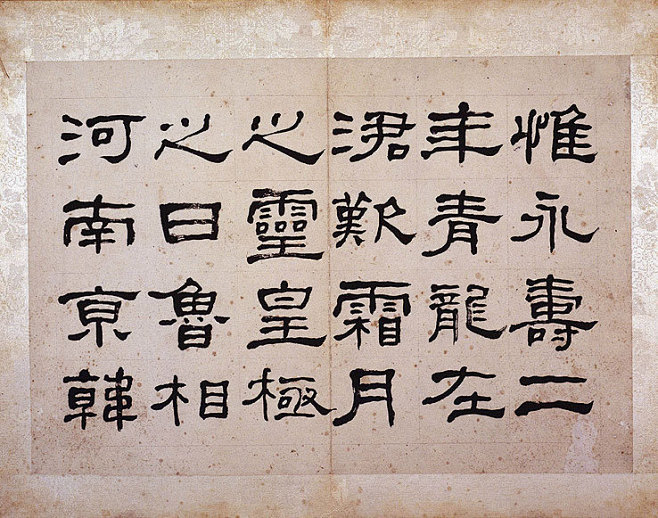 惟永壽二
年青龍在
涒歎霜月
之靈皇極
之日魯相
河南京韓